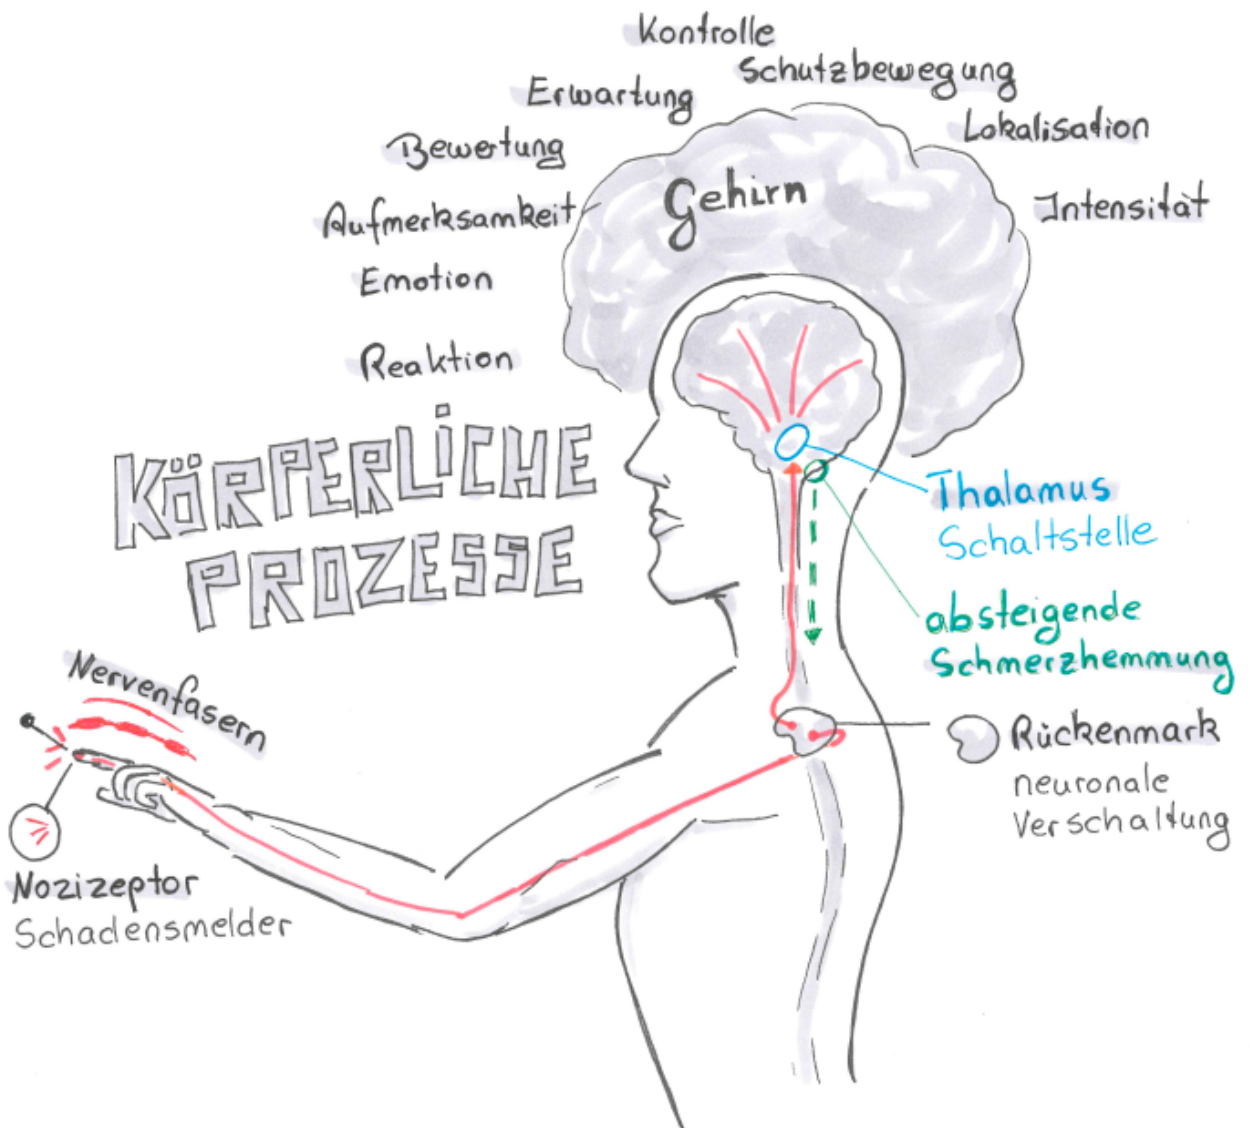 Kontrolle
Schutzbewegung
Erwartung
Lokalisation
Bewertung
Gehirn
Aufmerksamkeit
Intensität
Emotion
Reaktion
KÖRPERLICHE
PROZESSE
Thalamus
Schaltstelle
absteigende
Schmerzhemmung
Nervenfasern
Rückenmark
neuronale
Verschaltung
Nozizeptor
Schadensmelder